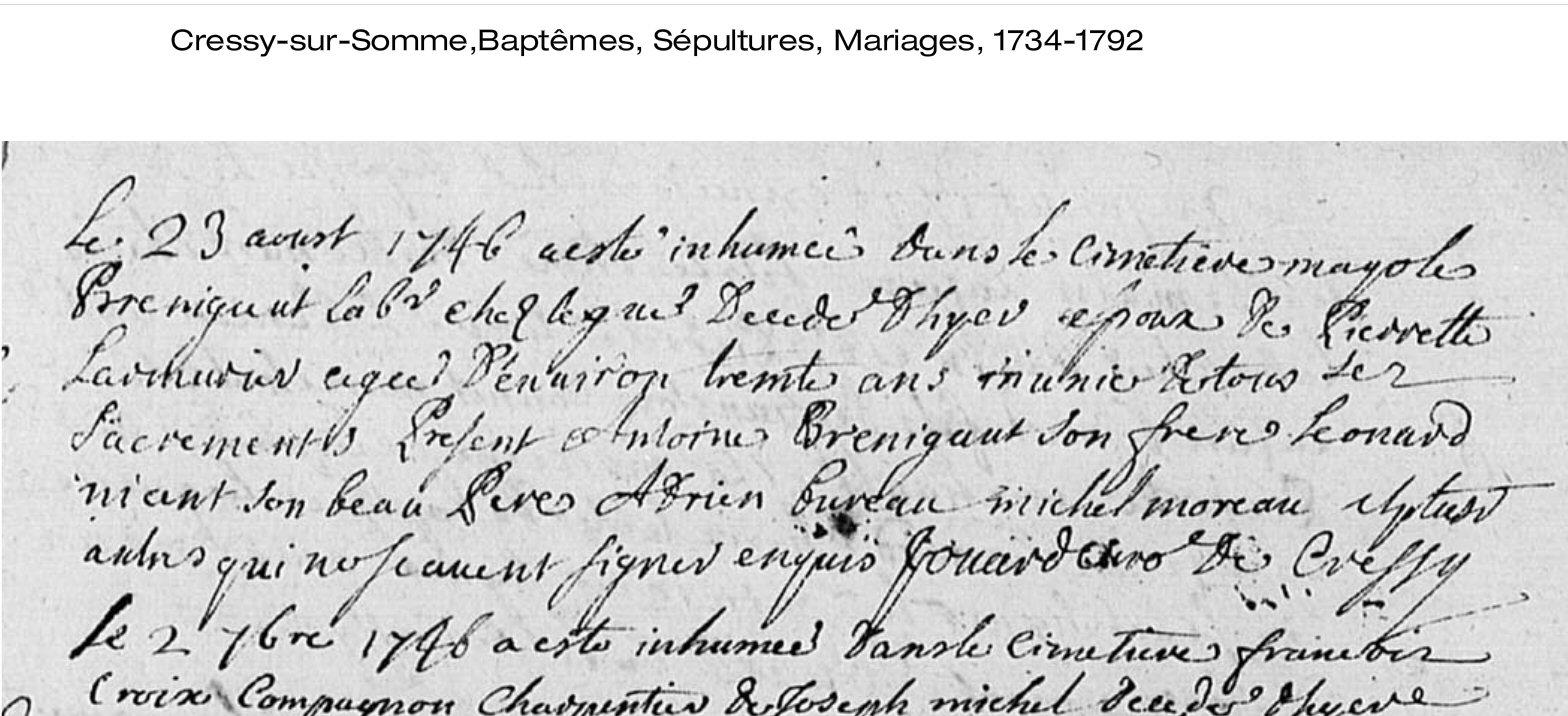 Cressy-sur-Somme,Baptêmes, Sépultures, Mariages, 1734-1792
Le 23 aoust 1746 a esté inhumeé dans le cimetiere mayole
Breniguaut lab^r chez Decedé Dhyer epoux de Pierrette
ageé D'enuiron trente ans munie de tous ses
Sacrements Present Antoine Brenigaut son frere Leonard
niant son beau Pere Adrien bureau michel moreau et plusr
autres qui ne scauent signer enquis Jouard curé de Cressy
Le 2 7bre 1746 a esté inhumeé dans le cimetiere francois
Croix Compagnon Charpentier de Joseph michel decedé dhyere